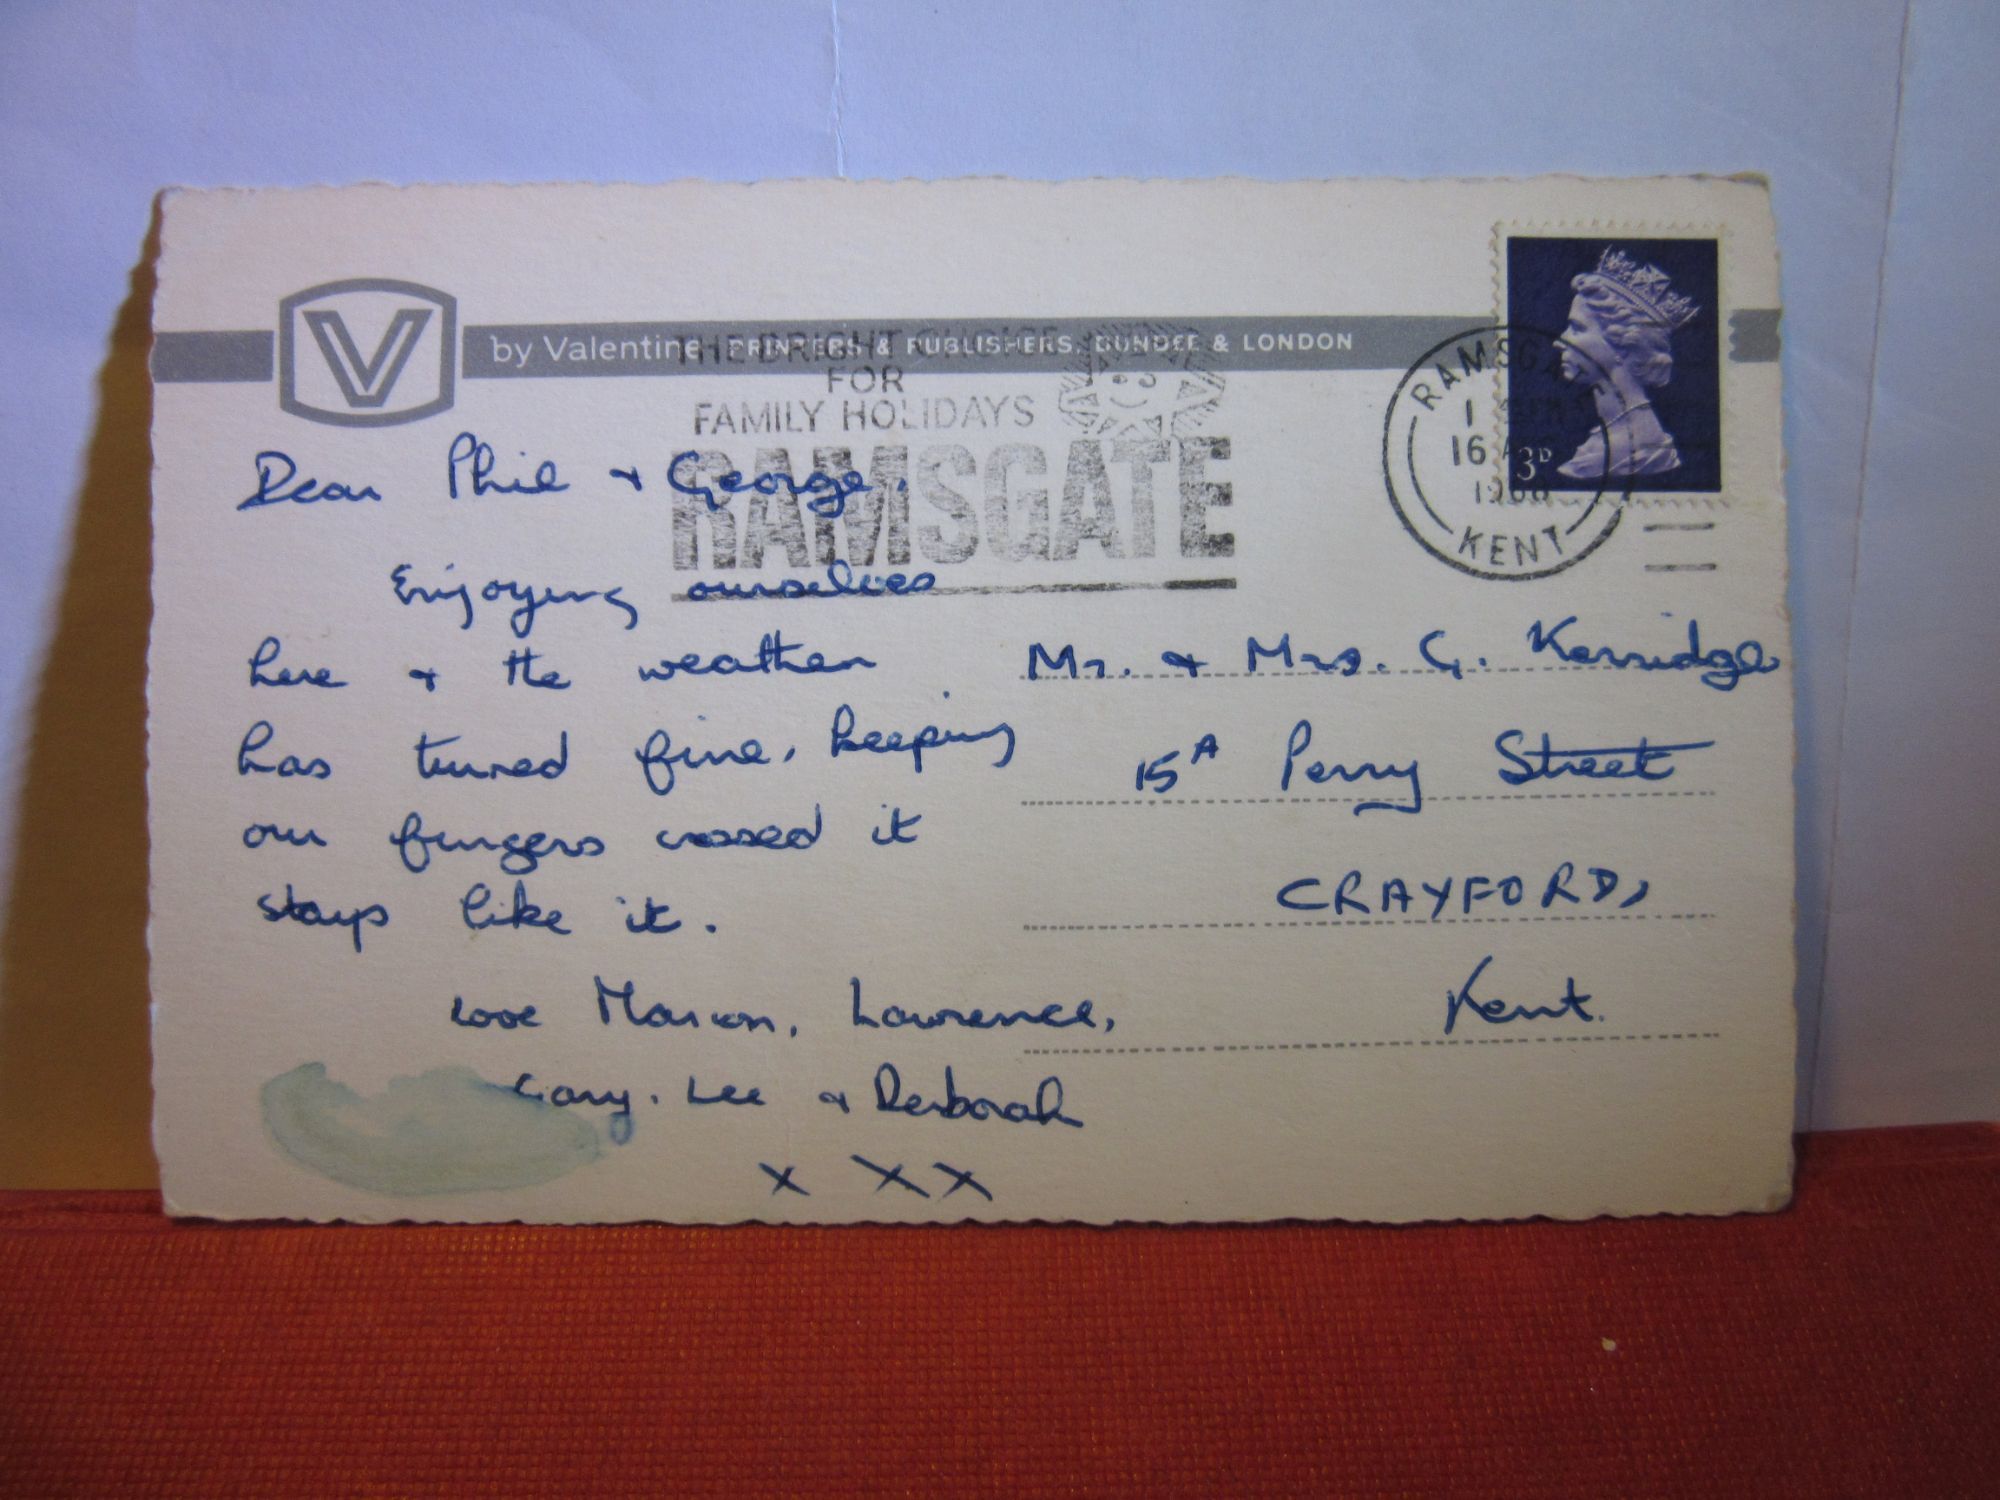 V
by Valentine PRINTERS & PUBLISHERS, DUNDEE & LONDON
THE BRIGHT CHOICE
FOR
FAMILY HOLIDAYS
RAMSGATE
RAMSGATE
1
16
1968
KENT
3D
Dear Phil & George,
Enjoying ourselves
here & the weather
has turned fine, keeping
our fingers crossed it
stays like it.
Love Marion, Lawrence,
Gary, Lee & Derborah
x xx
Mr. & Mrs. G. Kerridge
15A Perry Street
CRAYFORD,
Kent.